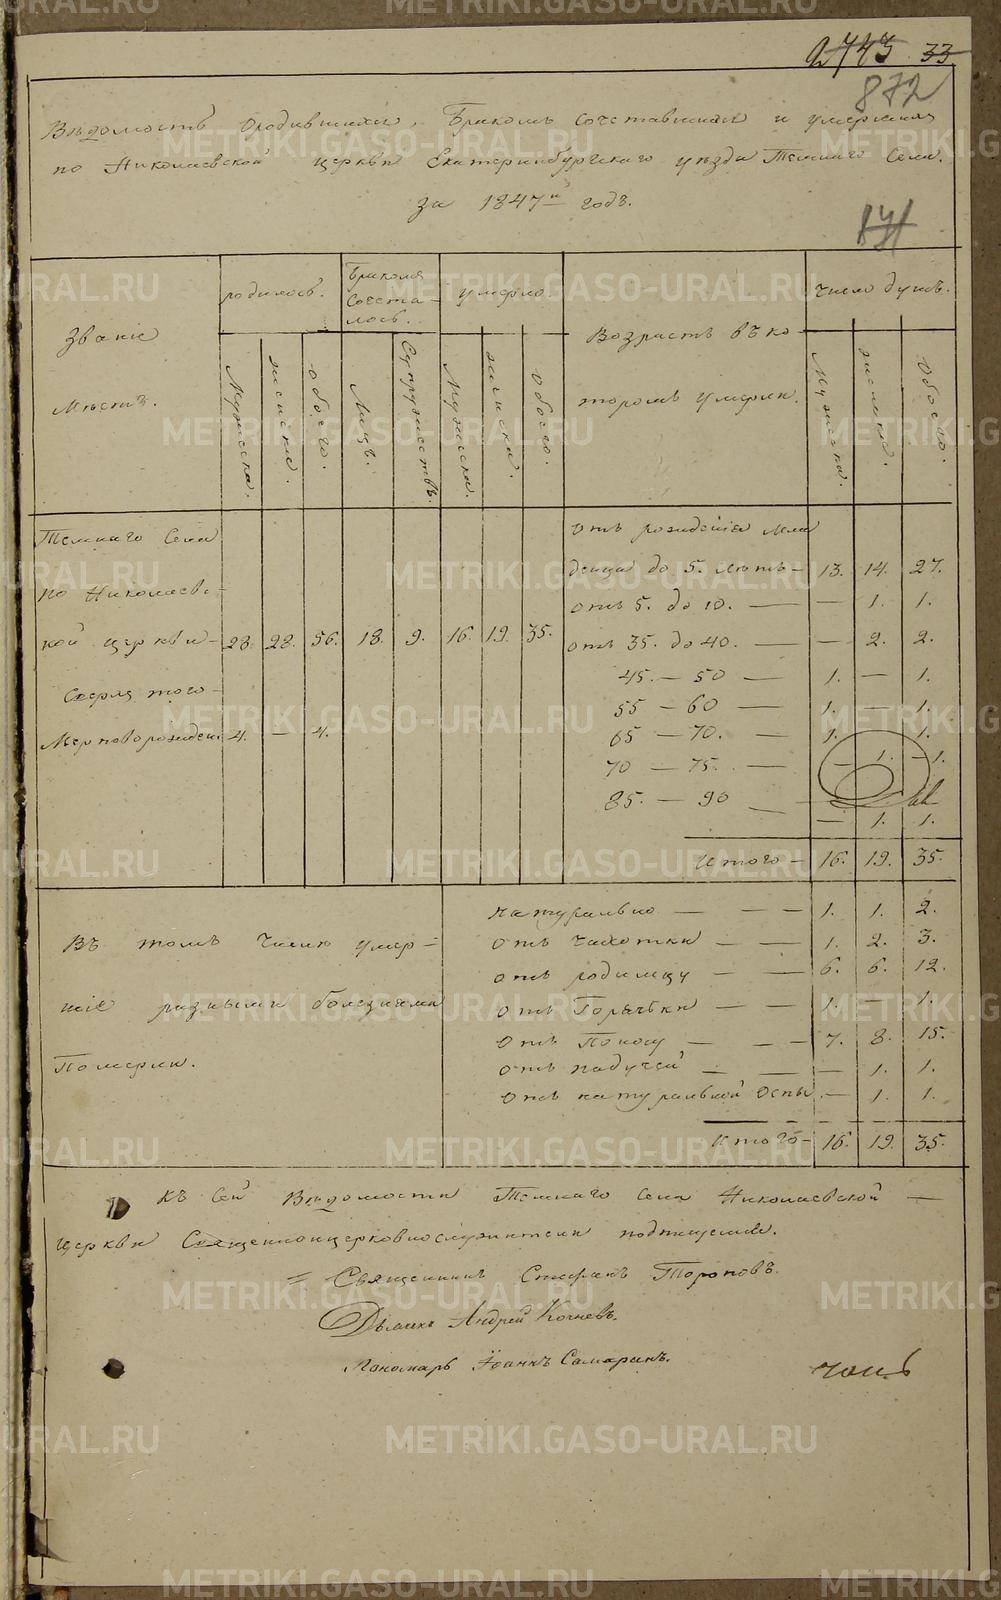 2743 33
872
Вѣдомость ородившихся, Бракомъ сочетавшихся и умершихъ
по Николаевской церкви Екатеринбургскаго уѣзда Темнаго Села.
за 1847й годъ.
871
Званіе
Мѣстъ.
родилось.
Бракомъ
сочета-
лось.
умерло.
Возрастъ въ ко-
торомъ умерли.
число душъ.
Мужеска.
женска.
обоего.
Лицъ.
Супружествъ.
Мужеска.
женска.
обоего.
Мужеска.
женска.
Обоего.
Темнаго Села
по Николаевс-
кой церкви - 28. 28. 56. 18. 9. 16. 19. 35.
Сверхъ того -
Мертворожден. 4. — 4.
отъ рожденія мла
денца до 5. лѣтъ - 13. 14. 27.
отъ 5. до 10. — — 1. 1.
отъ 35. до 40. — — 2. 2.
45. — 50 — 1. — 1.
55 — 60 — 1. — 1.
65 — 70. — 1. 1.
70 — 75. — — 1. 1.
85. — 90 — — 1. 1.
Итого - 16. 19. 35.
Въ томъ числѣ умер-
шіе разными болезнями
Померли.
натурально — — — 1. 1. 2.
отъ чахотки — — 1. 2. 3.
отъ родимцу — — 6. 6. 12.
отъ Горячьки — — 1. — 1.
отъ Поносу — — — 7. 8. 15.
отъ падучей — — — 1. 1.
отъ натуральной оспы. — 1. 1.
Итого - 16. 19. 35.
Къ Сей Вѣдомости Темнаго Села Николаевской —
церкви Священноцерковнослужители подписуемся.
Священникъ Стефанъ Топорковъ.
Дьячекъ Андрей Кочневъ.
Пономарь Іоаннъ Самаринъ.
METRIKI.GASO-URAL.RU